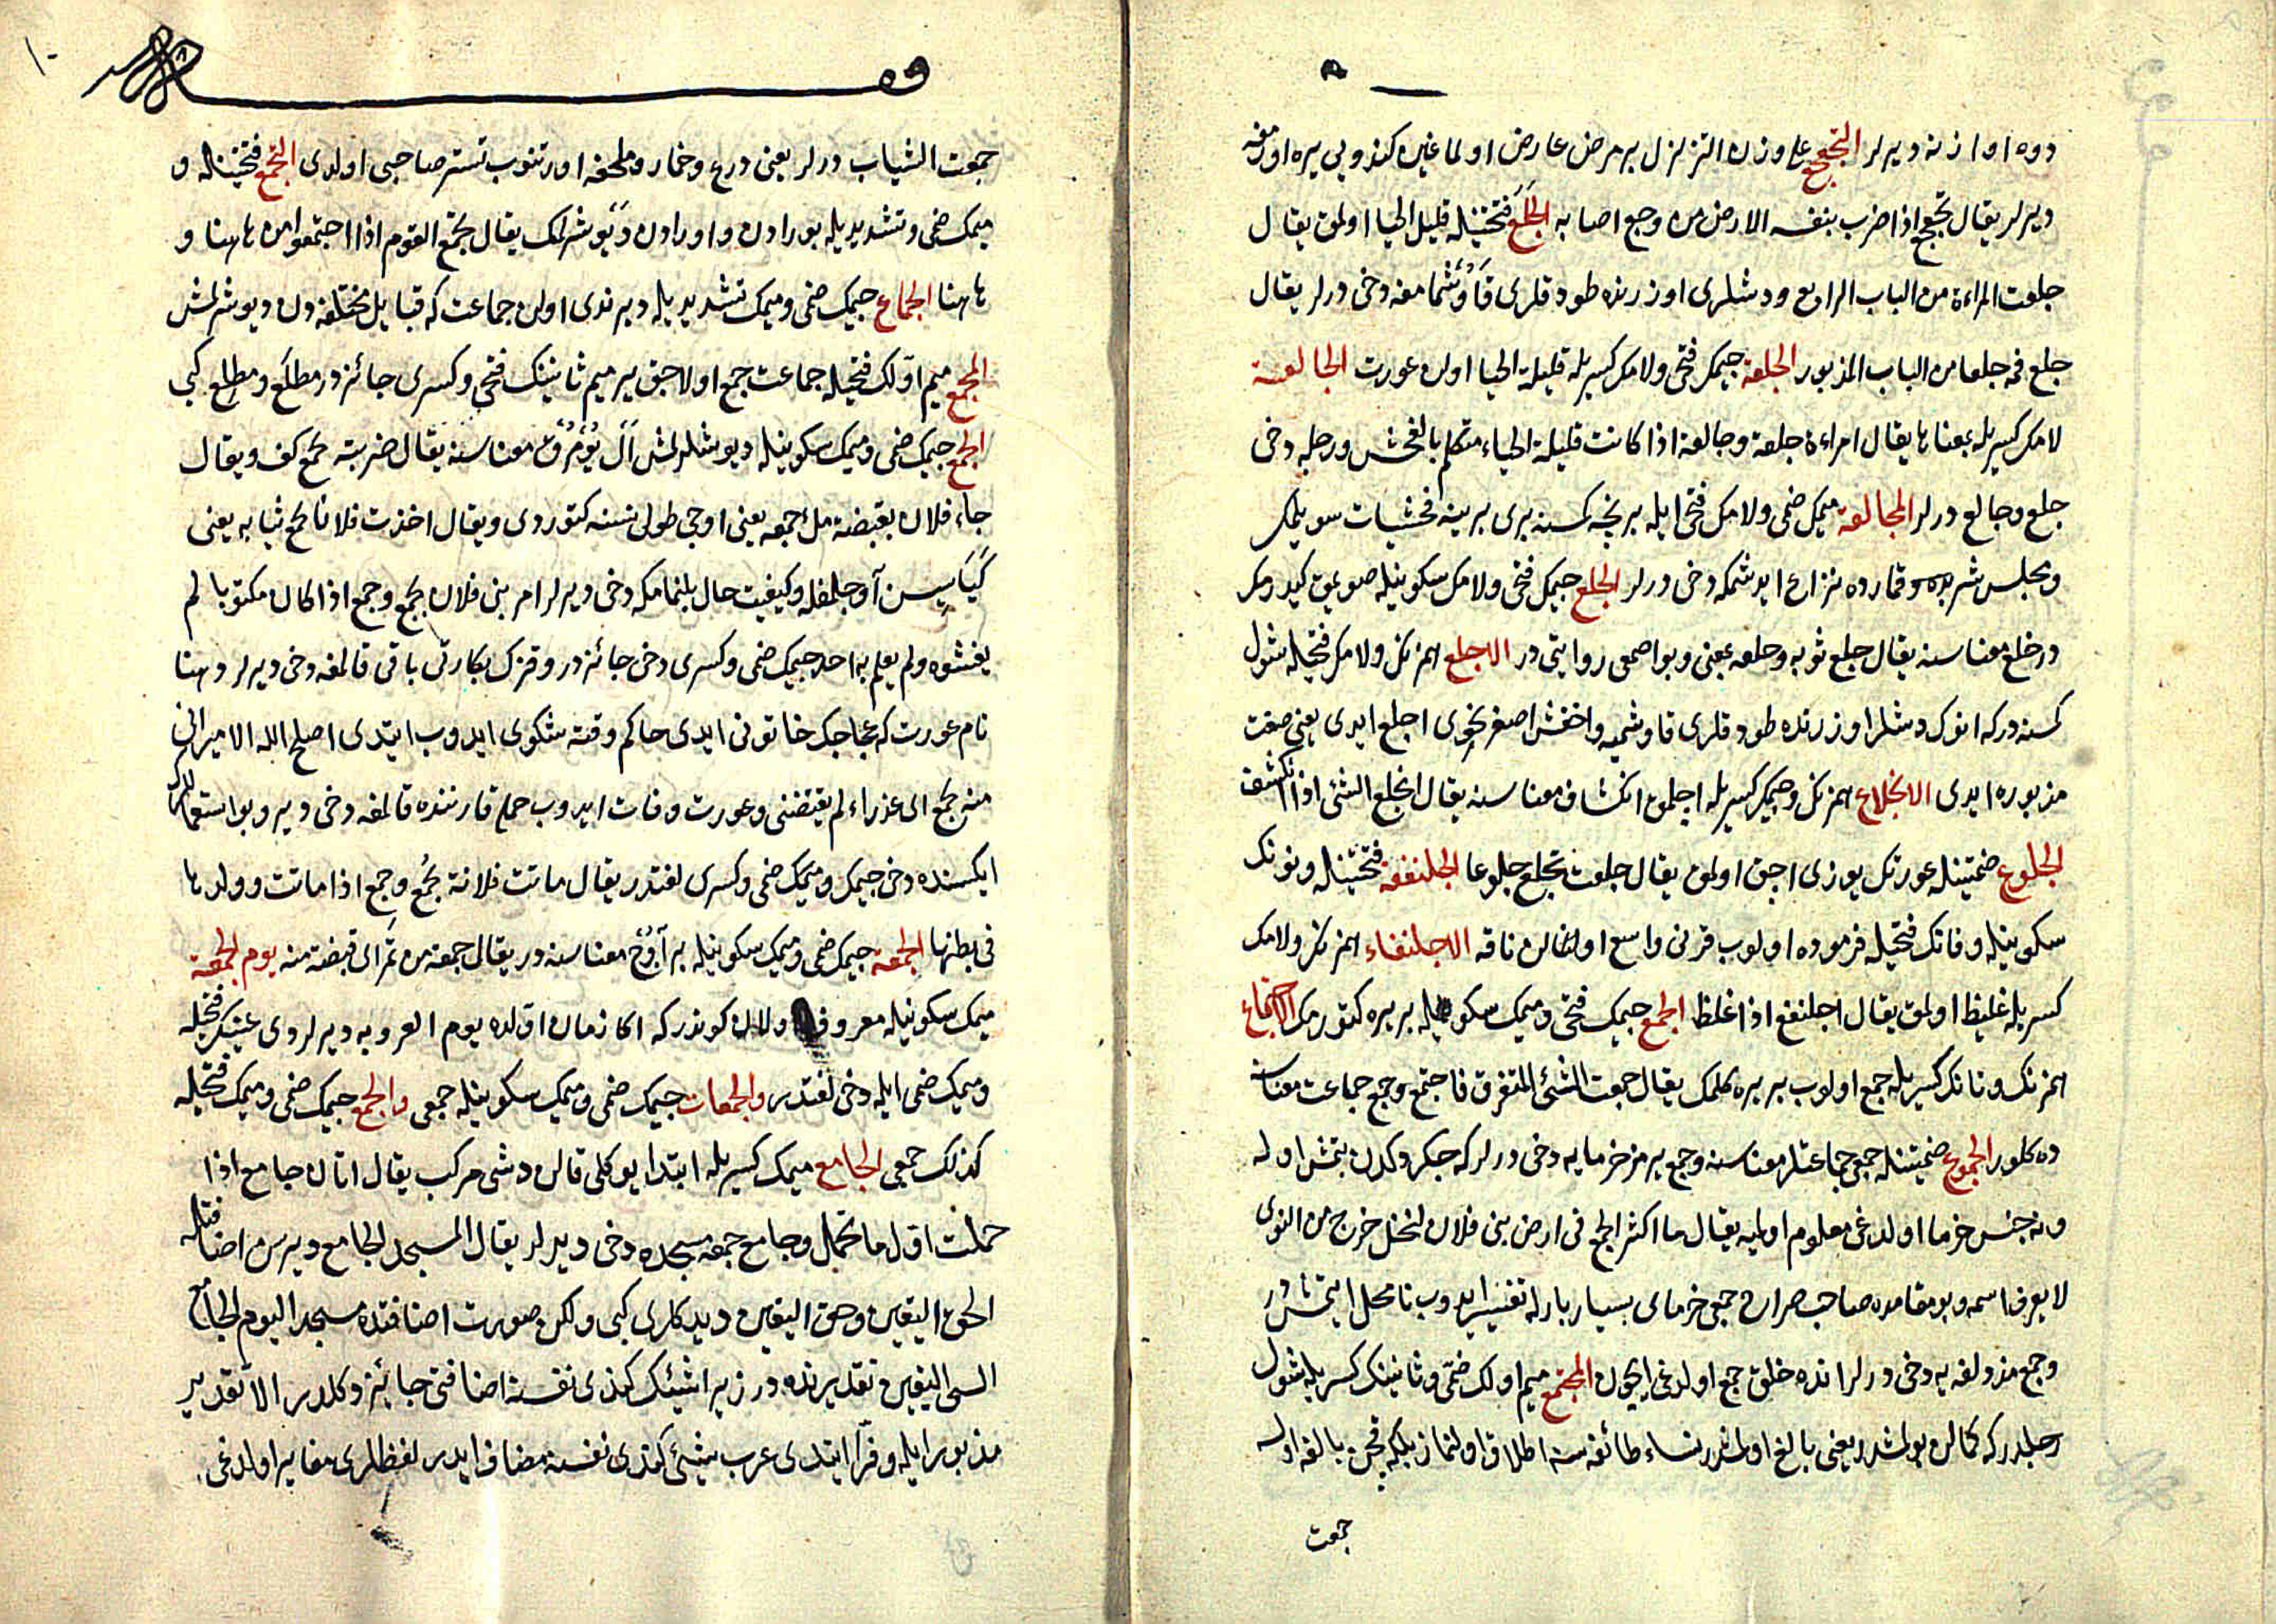 دوه اوازنه ديرلر التجعجع على وزن التزلزل بر مرض عارض اولماغين كندويى يره اورمغه
ديرلر يقال تجعجع اذا ضرب بنفسه الارض من وجع اصابه الجلع فتحتينله قليل الحيا اولمق يقال
جلعت المراءة من الباب الرابع ودشلرى اوزرنده طوداقلرى قاوشمامغه دخى درلر يقال
جلع فمه جلعا من الباب المذبور الجلعة جيمك فتحى ولامك كسريله قليلة الحيا اولن عورت الجالعة
لامك كسريله بمعناها يقال امراءة جلعة وجالعة اذا كانت قليلة الحياء متكلم بالفحش ورجله دخى
جلع وجالع درلر المجالعة ميمك ضمى ولامك فتحى ايله بر نجه كسنه برى برينه فحشيات سويلمك
ومجلس شربده وقمارده نزاع ايدشمكه دخى درلر الجلع جيمك فتحى ولامك سكونيله صويمق كيدرمك
در خلع معناسنه يقال جلع ثوبه وخلعه بمعنى وبو اصمعى روايتى در الاجلع همزنك ولامك فتحيله شول
كسنه دركه انوك دشلرى اوزرنده طوداقلرى قاوشميه واخفش اصغر نحوى اجلع ايدى يعنى صفت
مذبوره ايدى الانجلاع همزنك وجيمك كسريله اجلمق انكشاف معناسنه يقال انجلع الشئ اذا انكشف
الجلوع ضمتينله عورتك يوزى اجق اولمق يقال جلعت تجلع جلوعا الجلنفعة فتحتينله ونونك
سكونيله وفانك فتحيله فرموده اولوب قرنى واسع اولمغالن ناقه الاجلنفاء همزنك ولامك
كسريله غليظ اولمق يقال اجلنفع اذا غلظ الجمع جيمك فتحى وميمك سكونيله بر يره كتورمك الاجتماع
همزنك وتانك كسريله جمع اولوب بر يره كلمك يقال جمعت الشئ المتفرق فاجتمع وجمع جماعت معناسنه
ده كلور الجموع ضمتينله جمعى جماعتلر معناسنه وجمع يرمز خرمايه دخى درلر كه جكردكدن بتمش اوله
ونه جنس خرما اولدغى معلوم اولميه يقال ما اكثر الجمع فى ارض بنى فلان لنخل خرج من النوى
لا يعرف اسمه وبو مقامده صاحب صراح جمعى خرماى بسيار بار له تفسير ايدوب تامحل ايتمشدر
وجمع مزدلفه يه دخى درلر انده خلق جمع اولدغى ايچون المجتمع ميم اولك ضمى وثانينك كسريله شول
رجلدركه كمالن بولمشدر يعنى بالغ اولمشدر نساء طائفه سنه اطلاق اولنماز بلكه قچن بالغه اوله
جمعت
جمعت الثياب درلر يعنى درع وخمار وملحفه اورتنوب تستر صاحبى اولدى التجمع فتحتينله و
ميمك ضمى وتشديديله بورادن واورادن ديوشرلمك يقال تجمع القوم اذا اجتمعوا من هاهنا و
هاهنا الجماع جيمك ضمى وميمك تشديديله ديرندى اولن جماعت كه قبايل مختلفه دن ديوشرلمش
المجمع ميم اولك فتحيله جماعت جمع اولاجق ير ميم ثانينك فتحى وكسرى جائزدر مطلع ومطلع كبى
الجمع جيمك ضمى وميمك سكونيله ديوشلرلمش ال يومرق معناسنه يقال ضربته بجمع كف ويقال
جاء فلان بقبضة ملء جمعه يعنى اوجى طولى نسنه كتوردى ويقال اخذت فلانا بجمع ثيابه يعنى
كياسسن آوجلمغله وكيفيت حال بلنمامكه دخى ديرلر امر بنى فلان بجمع وجمع اذا كان مكتوبا لم
يفشوه ولم يعلم به احد جيمك ضمى وكسرى دخى جائزدر وقزك بكارتى باقى قالمغه دخى ديرلر دهنا
نام عورت كه عجاجك خاتونى ايدى حاكم وقته شكوى ايدوب ايتدى اصلح الله الامير انى
منه بجمع اى عذراء لم يفتضنى وعورت وفات ايدوب حملى قارننده قالمغه دخى ديرو بو استعمالك
ايكسنده دخى جيمك وميمك ضمى وكسرى لغتدر يقال ماتت فلانة بجمع وجمع اذا ماتت وولدها
فى بطنها الجمعة جيمك ضمى وميمك سكونيله بر آوج معناسنه در يقال جمعة من تمر اى قبضة منه يوم الجمعة
ميمك سكونيله معروف اولان كوندركه اكا زمان اولده يوم العروبه ديرلردى عينك فتحيله
وميمك ضمى ايله دخى لغتدر والجمعات جيمك ضمى وميمك سكونيله جمعى والجمع جيمك ضمى وميمك فتحيله
كذلك جمعى الجامع ميمك كسريله ابتدا يوكلى قالن دشى مركب يقال اتان جامع اذا
حملت اول ما تحمل وجامع جمعه مسجده دخى ديرلر يقال المسجد الجامع وديرسن اضافتله
الحق اليقين وحق اليقين ديدكلرى كبى ولكن صورت اضافتده مسجد اليوم الجامع
الشئ اليقين تقديرنده در زيرا شيئك كندى نفسنه اضافتى جائز دكلدر الا تقدير
مذبور ايله وفرا ايتدى عرب شيئى كندى نفسنه مضاف ايدر لفظلرى مغاير اولدغى